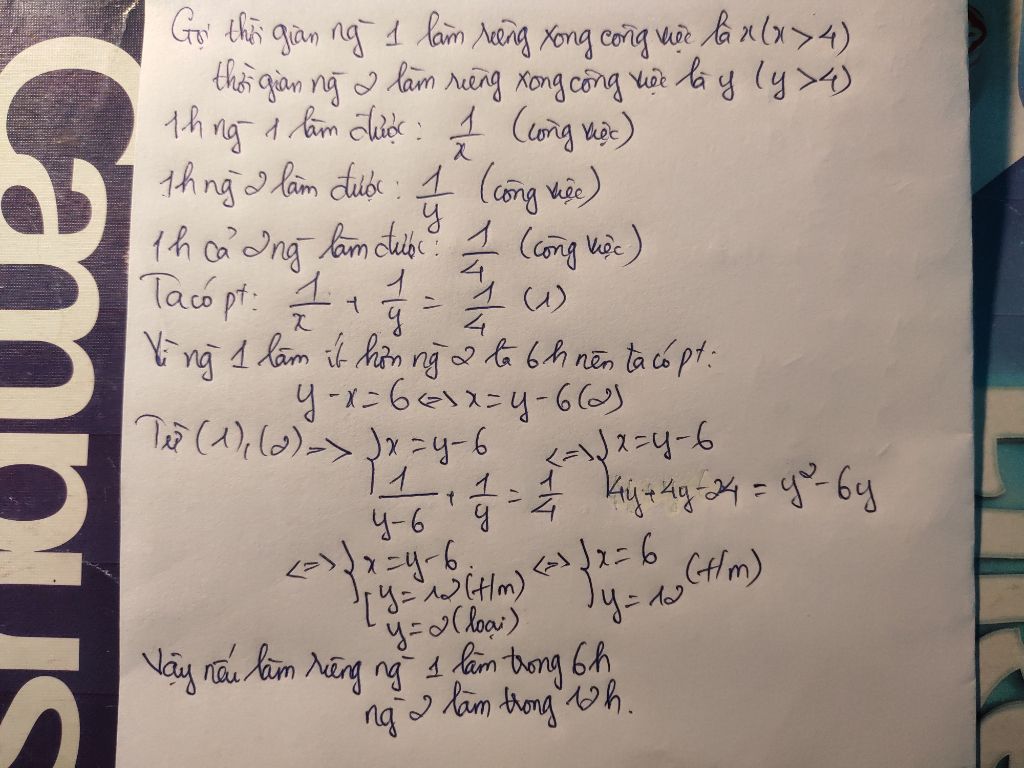 Gọi thời gian ng̅ 1 làm riêng xong công việc là x (x > 4)
thời gian ng̅ 2 làm riêng xong công việc là y (y > 4)
1h ng̅ 1 làm được: 1/x (công việc)
1h ng̅ 2 làm được: 1/y (công việc)
1h cả 2 ng̅ làm được: 1/4 (công việc)
Ta có pt: 1/x + 1/y = 1/4 (1)
Vì ng̅ 1 làm ít hơn ng̅ 2 là 6h nên ta có pt:
y - x = 6 <=> x = y - 6 (2)
Từ (1), (2) => { x = y - 6 <=> { x = y - 6
1/(y-6) + 1/y = 1/4 4y + 4y - 24 = y² - 6y
<=> { x = y - 6 <=> { x = 6 (t/m)
[ y = 12 (t/m) y = 12
y = 2 (loại)
Vậy nếu làm riêng ng̅ 1 làm trong 6h
ng̅ 2 làm trong 12h.
Campus